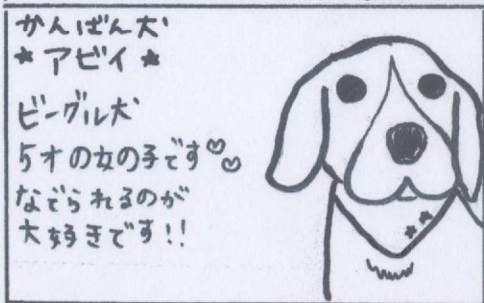 かんばん犬
★アビイ★
ビーグル犬
5才の女の子です♡♡
なでられるのが
大好きです!!